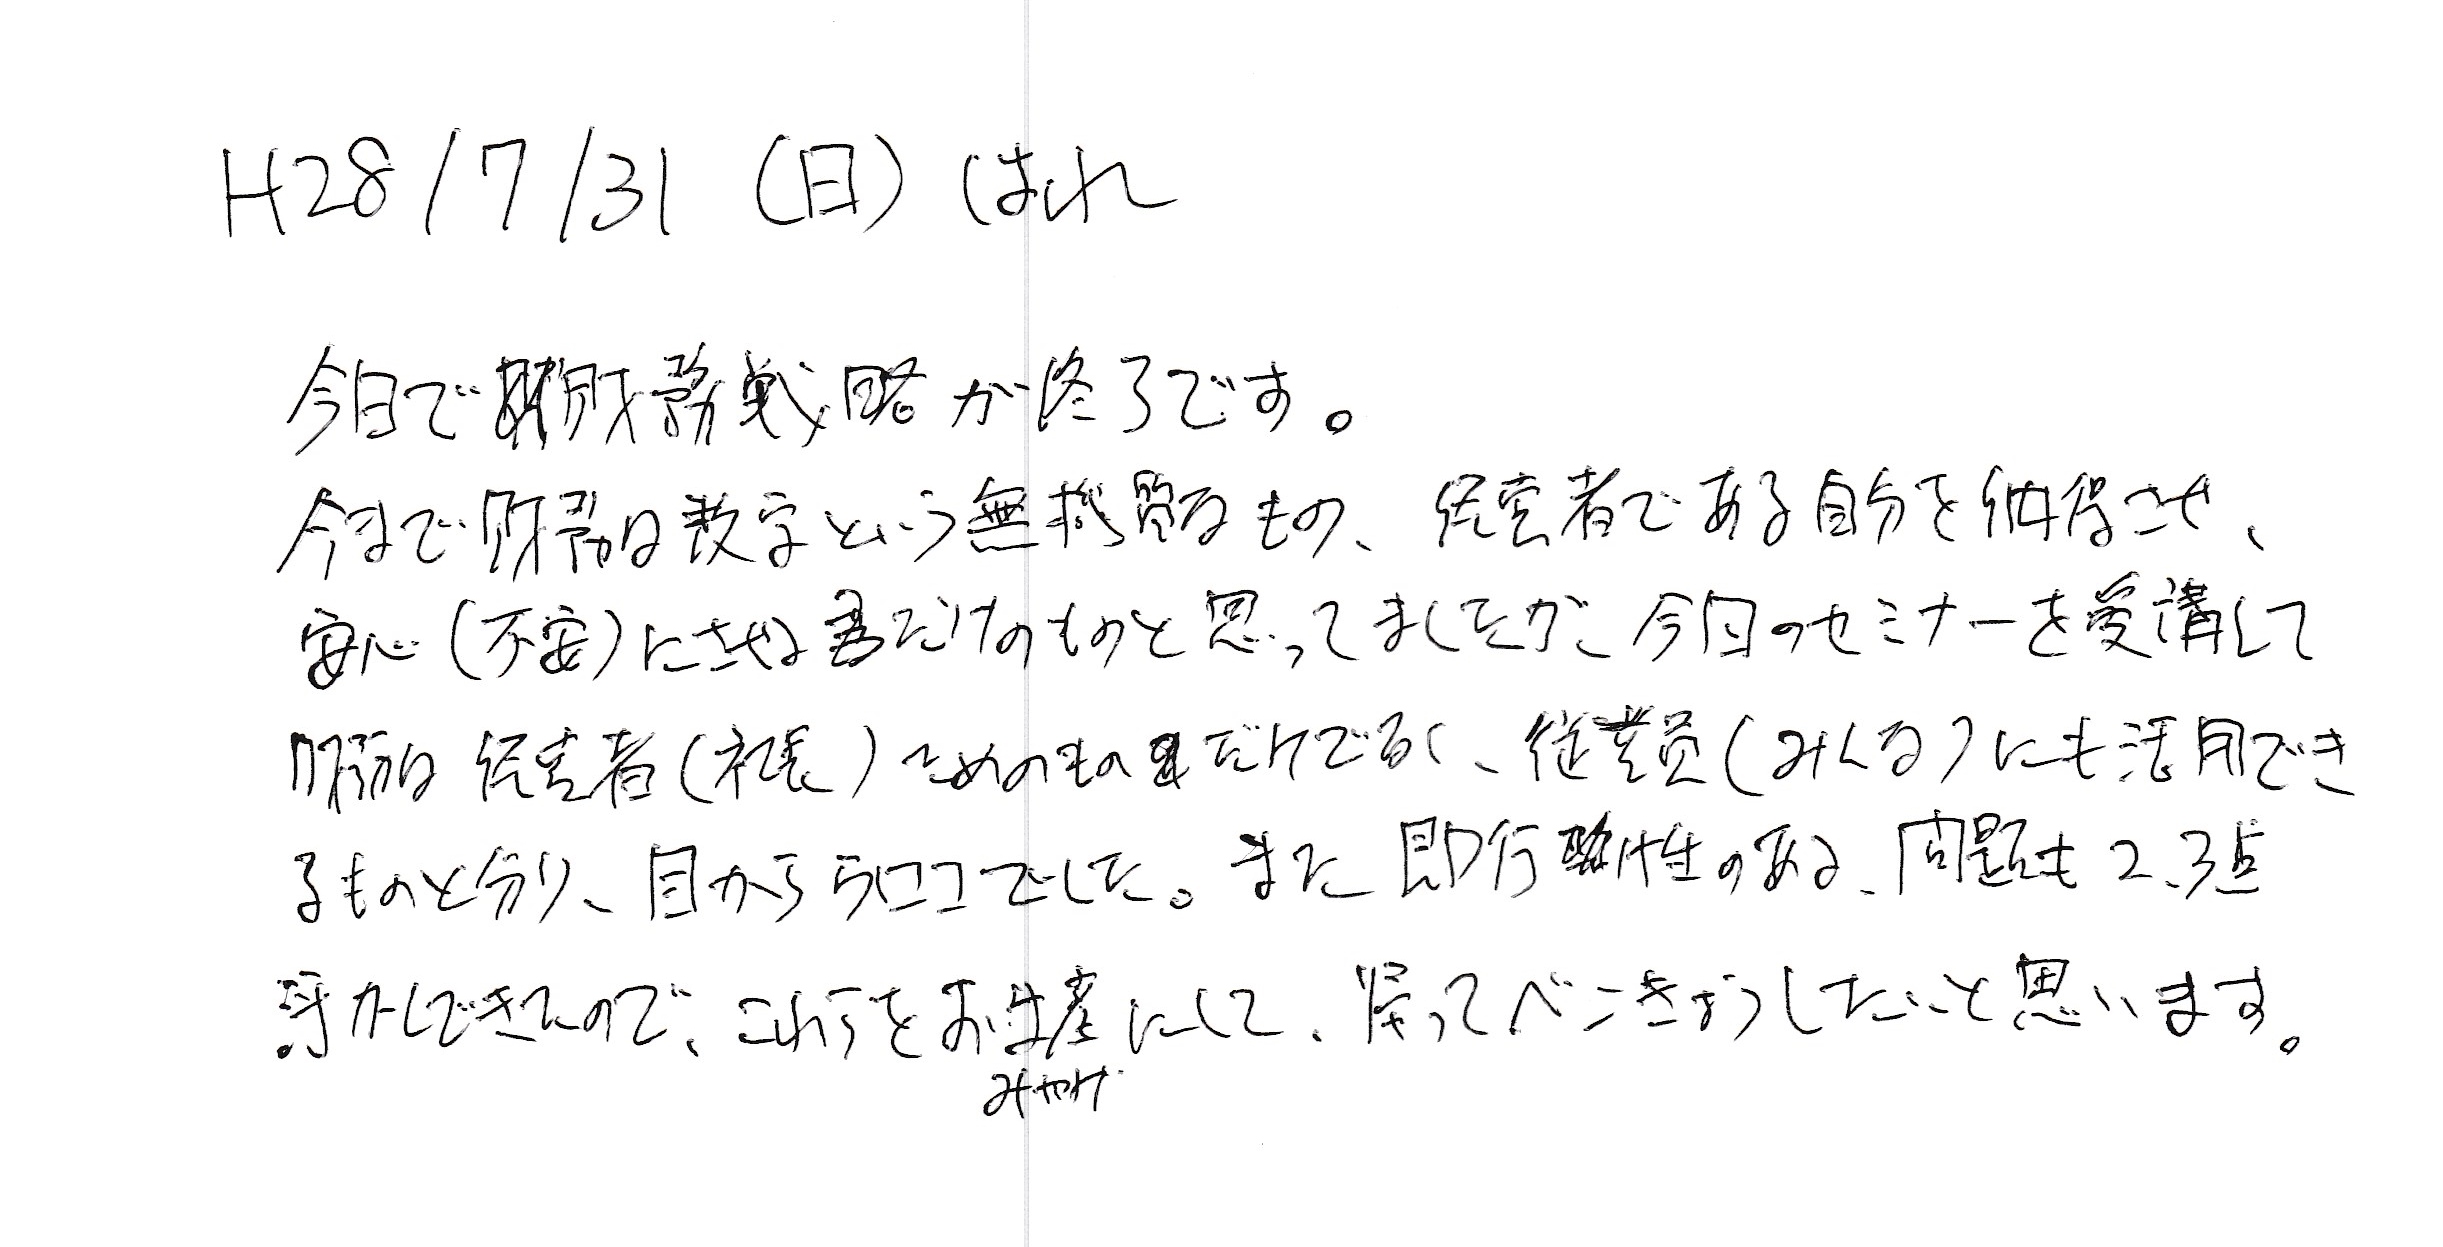 H28/7/31 (日) はれ
今日で財務戦略が終了です。
今まで財務は数字という無機質なもの、経営者である自分を納得させ、
安心(不安)にさせる為だけのものと思ってましたが、今日のセミナーを受講して
財務は経営者(社長)ためのものだけでなく、従業員(みんな)にも活用でき
るものと分り、目からウロコでした。また即行性のある、問題も2、3点
浮かしできたので、これらをお土産にして、帰ってべんきょうしたいと思います。
みやげ